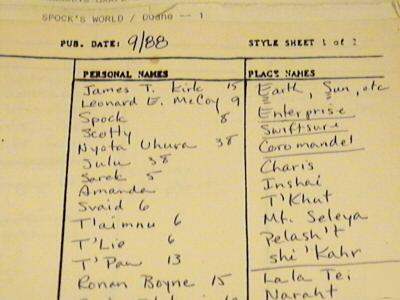 SPOCK'S WORLD / Duane -- 1
PUB. DATE: 9/88
STYLE SHEET 1 of 2
PERSONAL NAMES
James T. Kirk 15
Leonard E. McCoy 9
Spock 8
Scotty
Nyota Uhura 38
Sulu 38
Sarek 5
Amanda
Svaid 6
T'aimnu 6
T'Lie 6
T'Pau 13
Ronan Boyne 15
PLACE NAMES
Earth, Sun, etc
Enterprise
Swiftsure
Coromandel
Charis
Inshai
T'Khut
Mt. Seleya
Pelasht
shi'Kahr
Lala Tei
Naraht